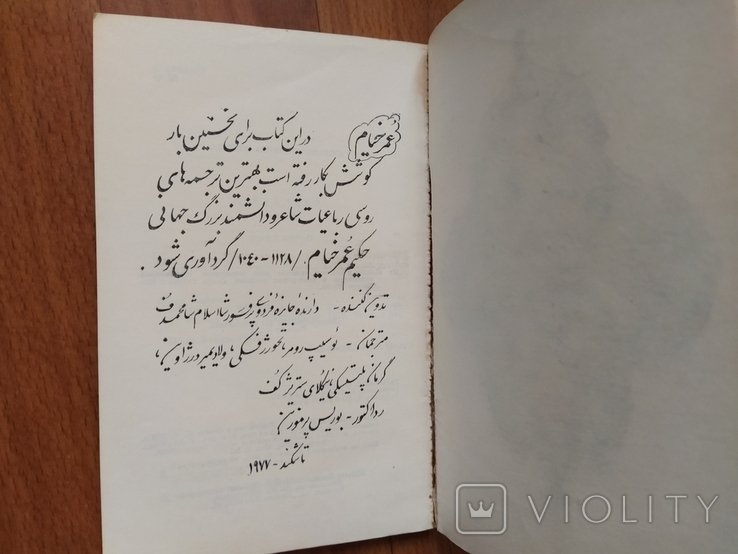 عمر خیام
در این کتاب برای نخستین بار
کوشش بکار رفته است بهترین ترجمه‌های
روسی رباعیات شاعر و دانشمند بزرگ جهانی
حکیم عمر خیام /۱۱۲۸-۱۰۴۰/ گردآوری شود.
تدوین کننده - دارندهٔ جایزه فردوسی پرفسور شااسلام شامحمدف
مترجمان - ئوسیپ رومر، تخورژفسکی، ولادیمیر درژاوین،
گرمان پلیستسکی، نیکلای ستریژکف
رداکتور - بوریس پرمزین
تاشکند - ۱۹۷۷
VIOLITY